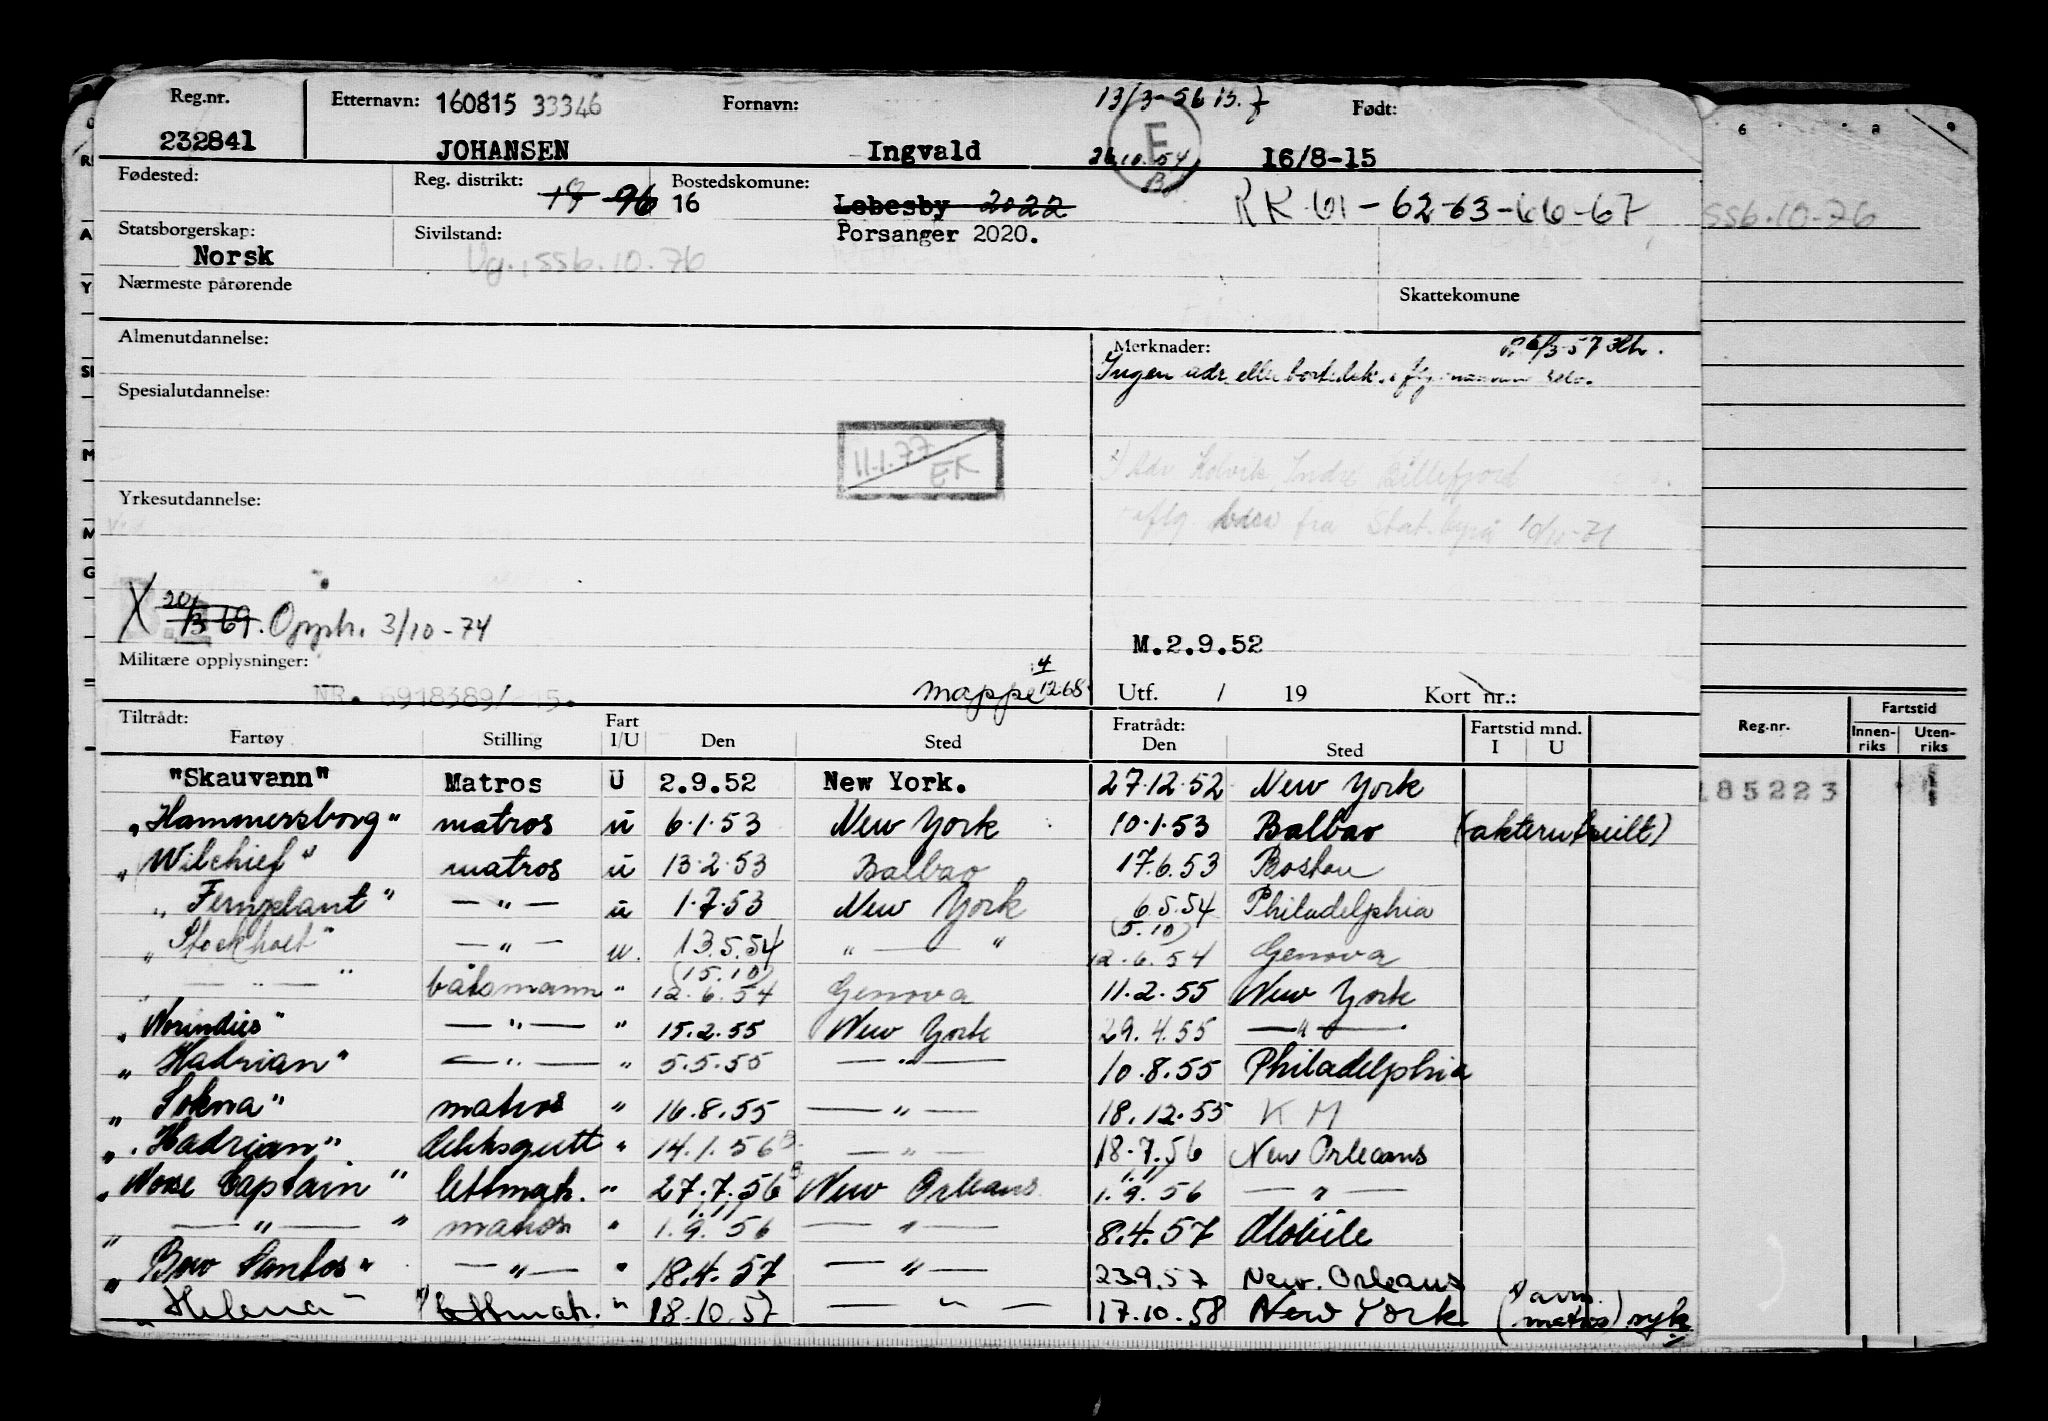 Reg.nr. Etternavn: 160815 33346 Fornavn: 13/3-56 Født:
232841 JOHANSEN Ingvald 26.10.54 E 16/8-15
Fødested: Reg. distrikt: 19 96 Bostedskomune: 16 Lebesby 2022 RK-61-62-63-66-67 ssb.10-76
Statsborgerskap: Norsk Sivilstand: Porsanger 2020.
Ug., ssb.10.76
Nærmeste pårørende Skattekomune
Almenutdannelse: Merknader:
Ingen adr. eller
Spesialutdannelse:
11.1.77 EK
Adv Kolvik, Indre Billefjord
Yrkesutdannelse:
fra Stat. byrå
X 20/3 69. Opph. 3/10-74
M.2.9.52
Militære opplysninger: mappe 4/12 68
Utf. / 19 Kort nr.:
Tiltrådt: Fartøy Stilling Fart I/U Den Sted Fratrådt: Den Sted Fartstid mnd. I U
Reg.nr. Fartstid Innen-riks Uten-riks
"Skauvann" Matros U 2.9.52 New York. 27.12.52 New York 185223
"Hammersborg" matros u 6.1.53 New York 10.1.53 Balbao (akterutseilt)
"Wilchief" matros u 13.2.53 Balbao 17.6.53 Boston
"Fernplant" — " — u 1.7.53 New York 6.5.54 Philadelphia
(5.10)
"Stockholt" — " — u. 13.5.54 " — " 12.6.54 Genova
(15.10)
— " — " båtsmann " 12.6.54 Genova 11.2.55 New York
"Norindies" — " — " 15.2.55 New York 29.4.55 — " —
"Hadrian" — " — " 5.5.55 — " — 10.8.55 Philadelphia
"Sokna" matros " 16.8.55 — " — 18.12.55 K M
"Hadrian" dekksgutt " 14.1.56 — " — 18.7.56 New Orleans
"Norse Captain" lettmatr. " 27.7.56 New Orleans 1.9.56 — " —
— " — " matros " 1.9.56 — " — 8.4.57 Mobile
"Bow Santos" — " — " 18.4.57 — " — 23.9.57 New Orleans
"Helena" lettmatr. " 18.10.57 — " — 17.10.58 New York (avm. matros) syk